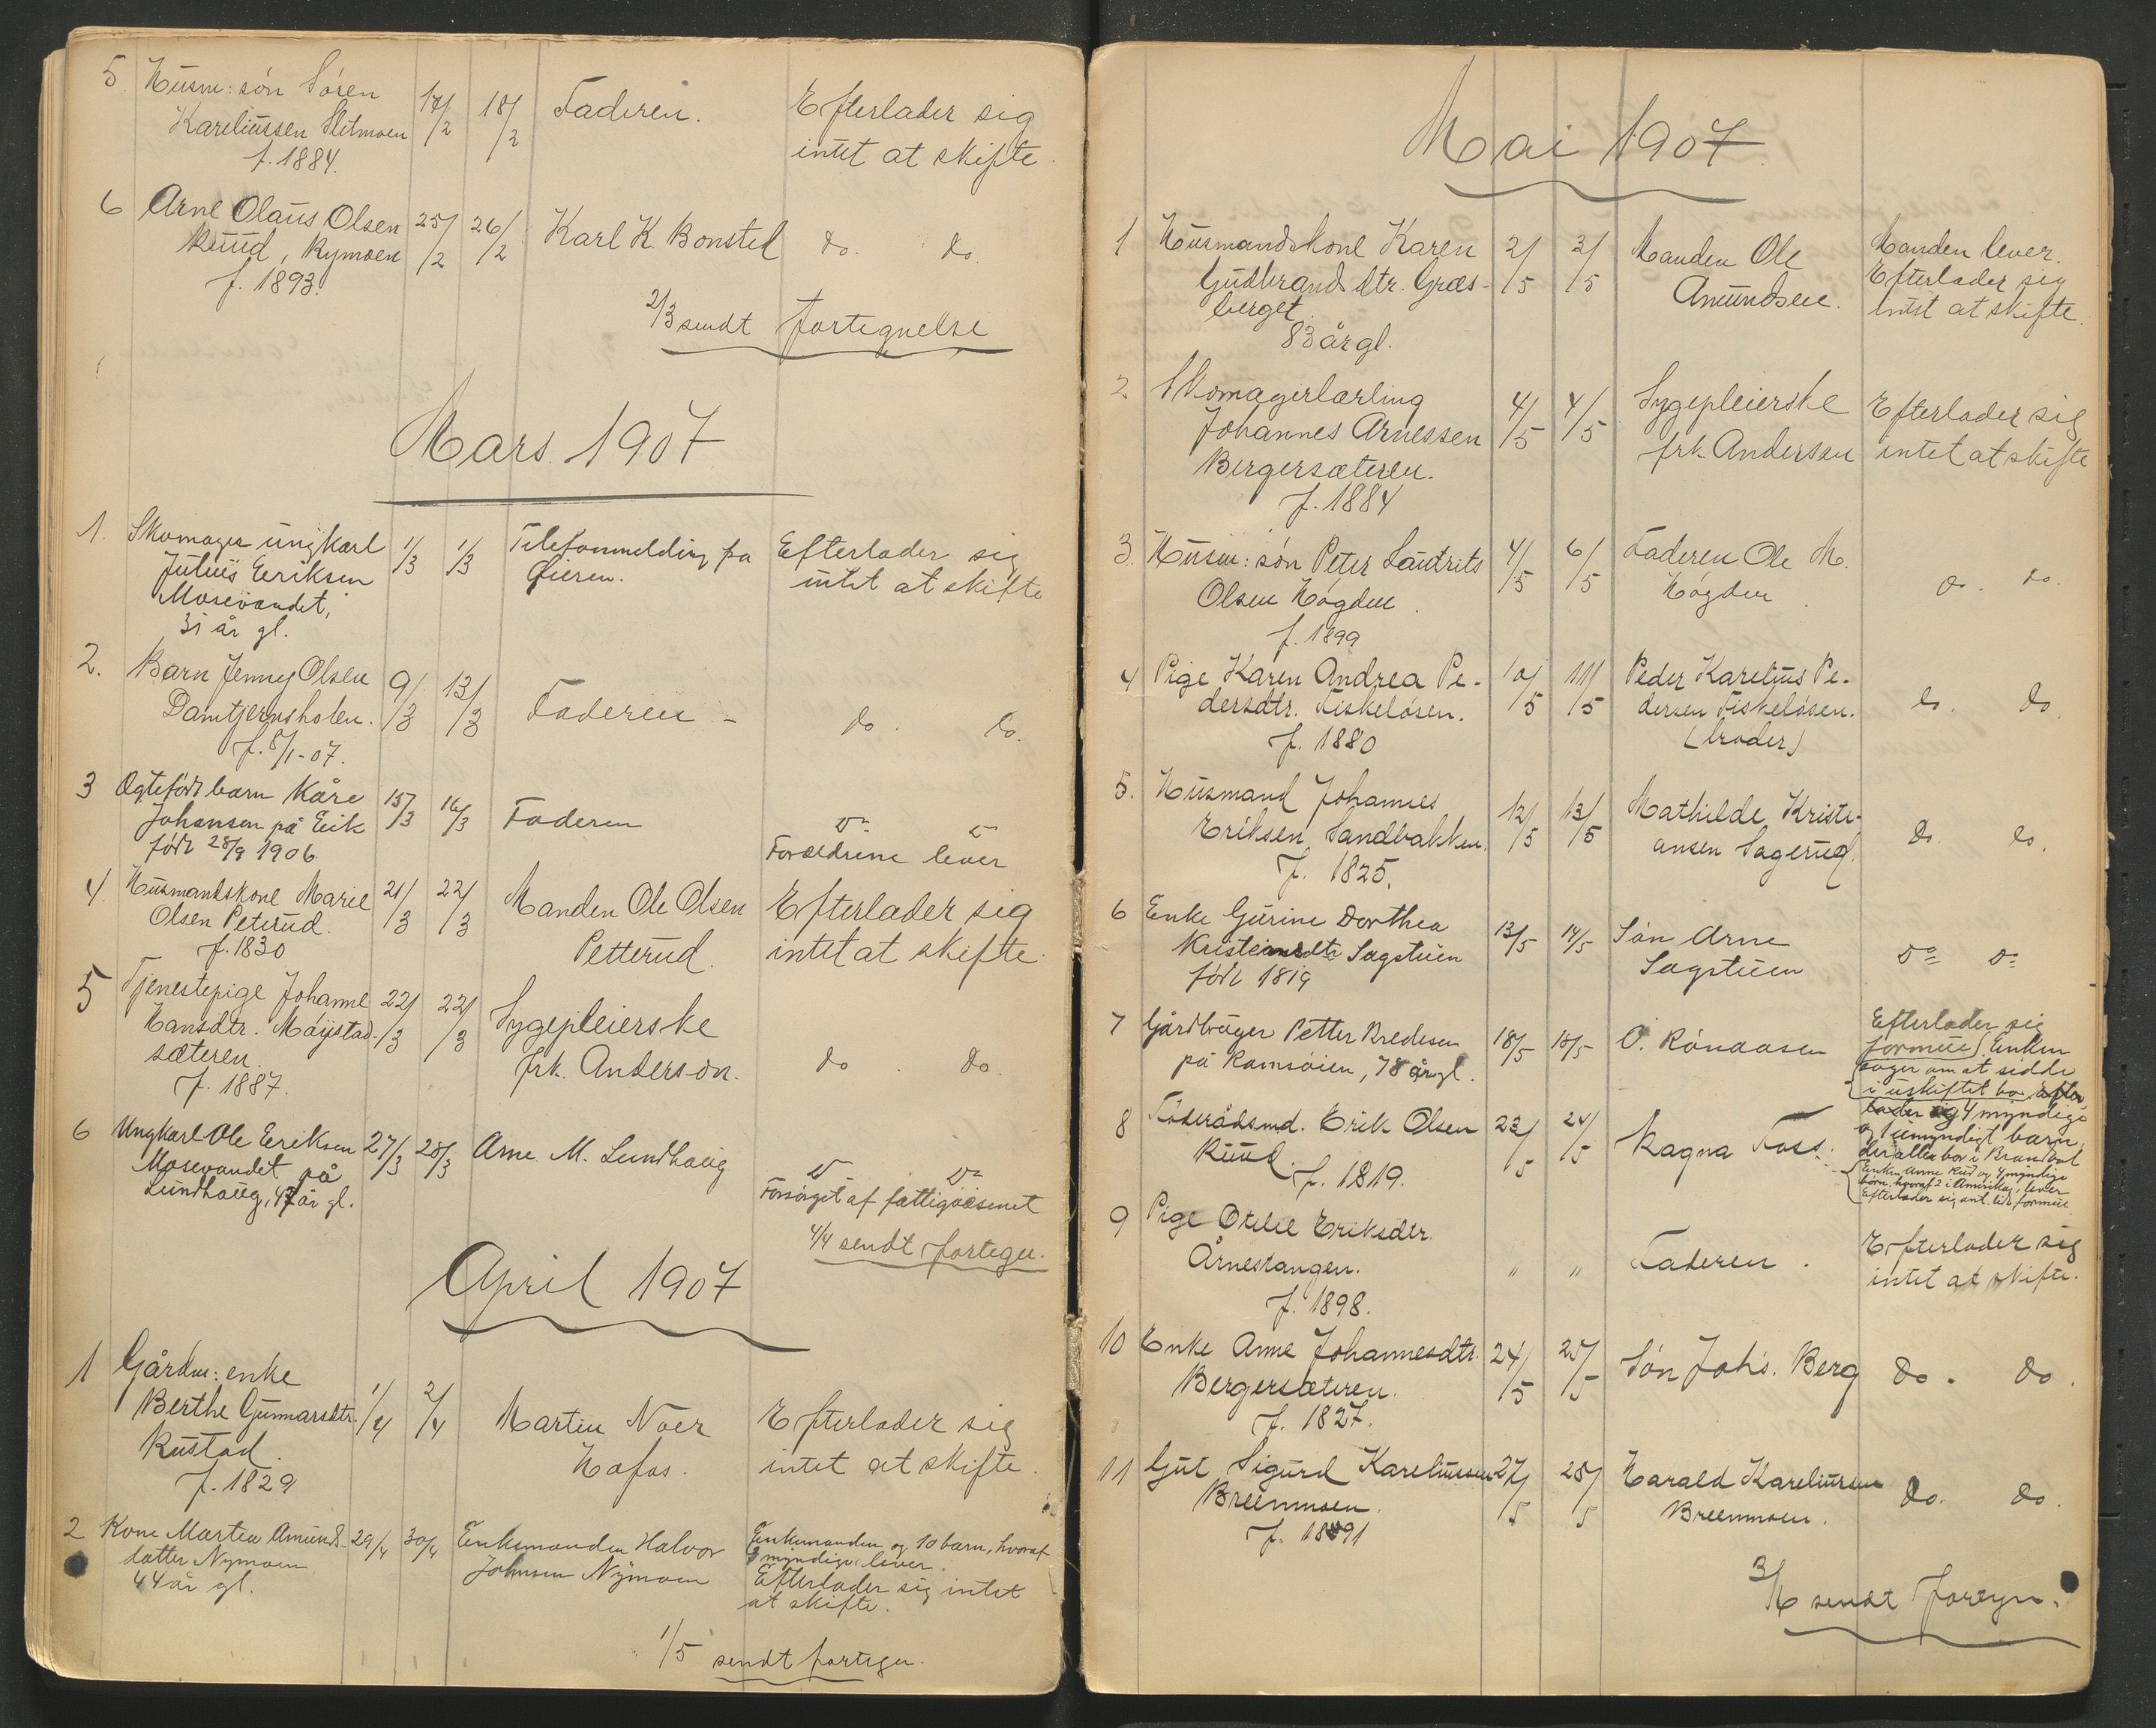 5. Husm: søn Søren 17/2 18/2 Faderen. Efterlader sig
Kareliussen Sletmoen intet at skifte.
f. 1884.
6 Arne Olaus Olsen 25/2 26/2 Karl K. Bonsted do. do.
Ruud, Rymoen
f. 1893.
2/3 sendt fortegnelse
Mars 1907
1. Skomager ungkarl 1/3 1/3 Telefonmelding fra Efterlader sig
Julius Eeriksen Gieren. intet at skifte
Mosevandet,
31 år gl.
2. Barn Jenny Olsen 9/3 13/3 Faderen - do. do.
Damtjernsholen.
f. 8/1-07.
3 Ægtefødt barn Kåre 15/3 16/3 Faderen do do
Johansen på Eeik Forældrene lever
født 28/9 1906
4. Husmandskone Marie 21/3 22/3 Manden Ole Olsen Efterlader sig
Olsen Peterud. Petterud. intet at skifte.
f. 1830
5 Tjenestepige Johanne 22/3 22/3 Sygepleierske
Hansdtr. Møystad- frk. Anderson. do. do.
sæteren.
f. 1887.
6 Ungkarl Ole Eeriksen 27/3 28/3 Arne M. Lundhaug do do
Mosevandet på Forsørget af fattigvæsenet
Lundhaug, 47 år gl.
4/4 sendt fortegn.
April 1907
1 Gårdm: enke
Berthe Gunnarsdtr. 1/4 2/4 Martin Noer Efterlader sig
Rustad. Hafos. intet at skifte.
f. 1829
2 Kone Martea Amunds- 29/4 30/4 Enkemanden Halvor Enkemanden og 10 barn, hvoraf
datter Nymoen Johnsen Nymoen myndige, lever.
44 år gl. Efterlader sig intet
at skifte.
1/5 sendt fortegn.
Mai 1907
1 Husmandskone Karen 2/5 3/5 Manden Ole Manden lever.
Gudbrandsdtr. Græs- Amundsen. Efterlader sig
berget. intet at skifte.
83 år gl.
2 Skomagerlærling 4/5 4/5 Sygepleierske Efterlader sig
Johannes Arnessen frk. Andersen intet at skifte
Bergersæteren.
f. 1884
3. Husm: søn Peter Lautrits 4/5 6/5 Faderen Ole M. do. do.
Olsen Høgden. Høgden.
f. 1899
4 Pige Karen Andrea Pe- 10/5 11/5 Peder Karelius Pe- do. do.
dersdtr. Fiskeløsen. dersen Fiskeløsen.
f. 1880 (broder)
5. Husmand Johannes 12/5 13/5 Mathilde Kristi- do. do.
Eriksen Sandbakken. ansen Sagerud.
f. 1825.
6 Enke Gurine Dorthea 13/5 14/5 Søn Arne do do
Kristeinsdtr Sagstuen Sagstuen
født 1819
7 Gårdbruger Petter Bredesen 18/5 18/5 O. Rønaasen Efterlader sig
på Ramsøien, 78 år gl. formue. Enken
søger om at sidde
i uskiftet bo. Efter
lader sig 4 myndige
og 1 umyndigt barn,
der alle bor i Brandval
8 Føderådsmd. Erik Olsen 23/5 24/5 Ragna Foss. Enken Anne Rud og 4 myndige
Ruud. f. 1819. børn, hvoraf 2 i Amerika, lever
Efterlader sig ant. lidt formue
9 Pige Otilie Eriksdtr. " " Faderen. Efterlader sig
Årnestangen. intet at skifte.
f. 1898.
10 Enke Anne Johannesdtr. 24/5 25/5 Søn Johs. Berg do. do.
Bergersæteren.
f. 1827.
11 Gut Sigurd Kareliussen 27/5 28/5 Harald Kareliussen do. do.
Breenmoen. Breenmoen.
f. 1891
3/6 sendt fortgn.